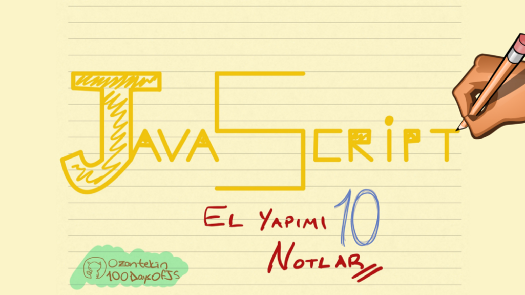 JAVASCRIPT
EL YAPIMI 10
NOTLAR
Ozantekin
100DaysOfJS